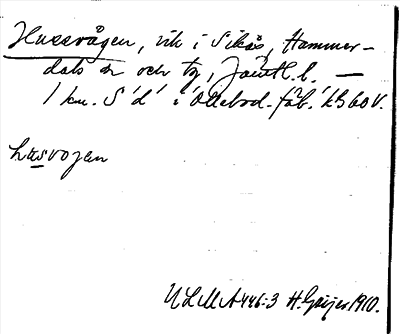 Hussvågen, vik i Sikås, Hammer-
dals sn och tg, Jämtl. l. —
1 km. S 'd' i Ollebod. fäb. kb 60 V.
husvogen
ULMA 446:3 H. Geijer 1910.